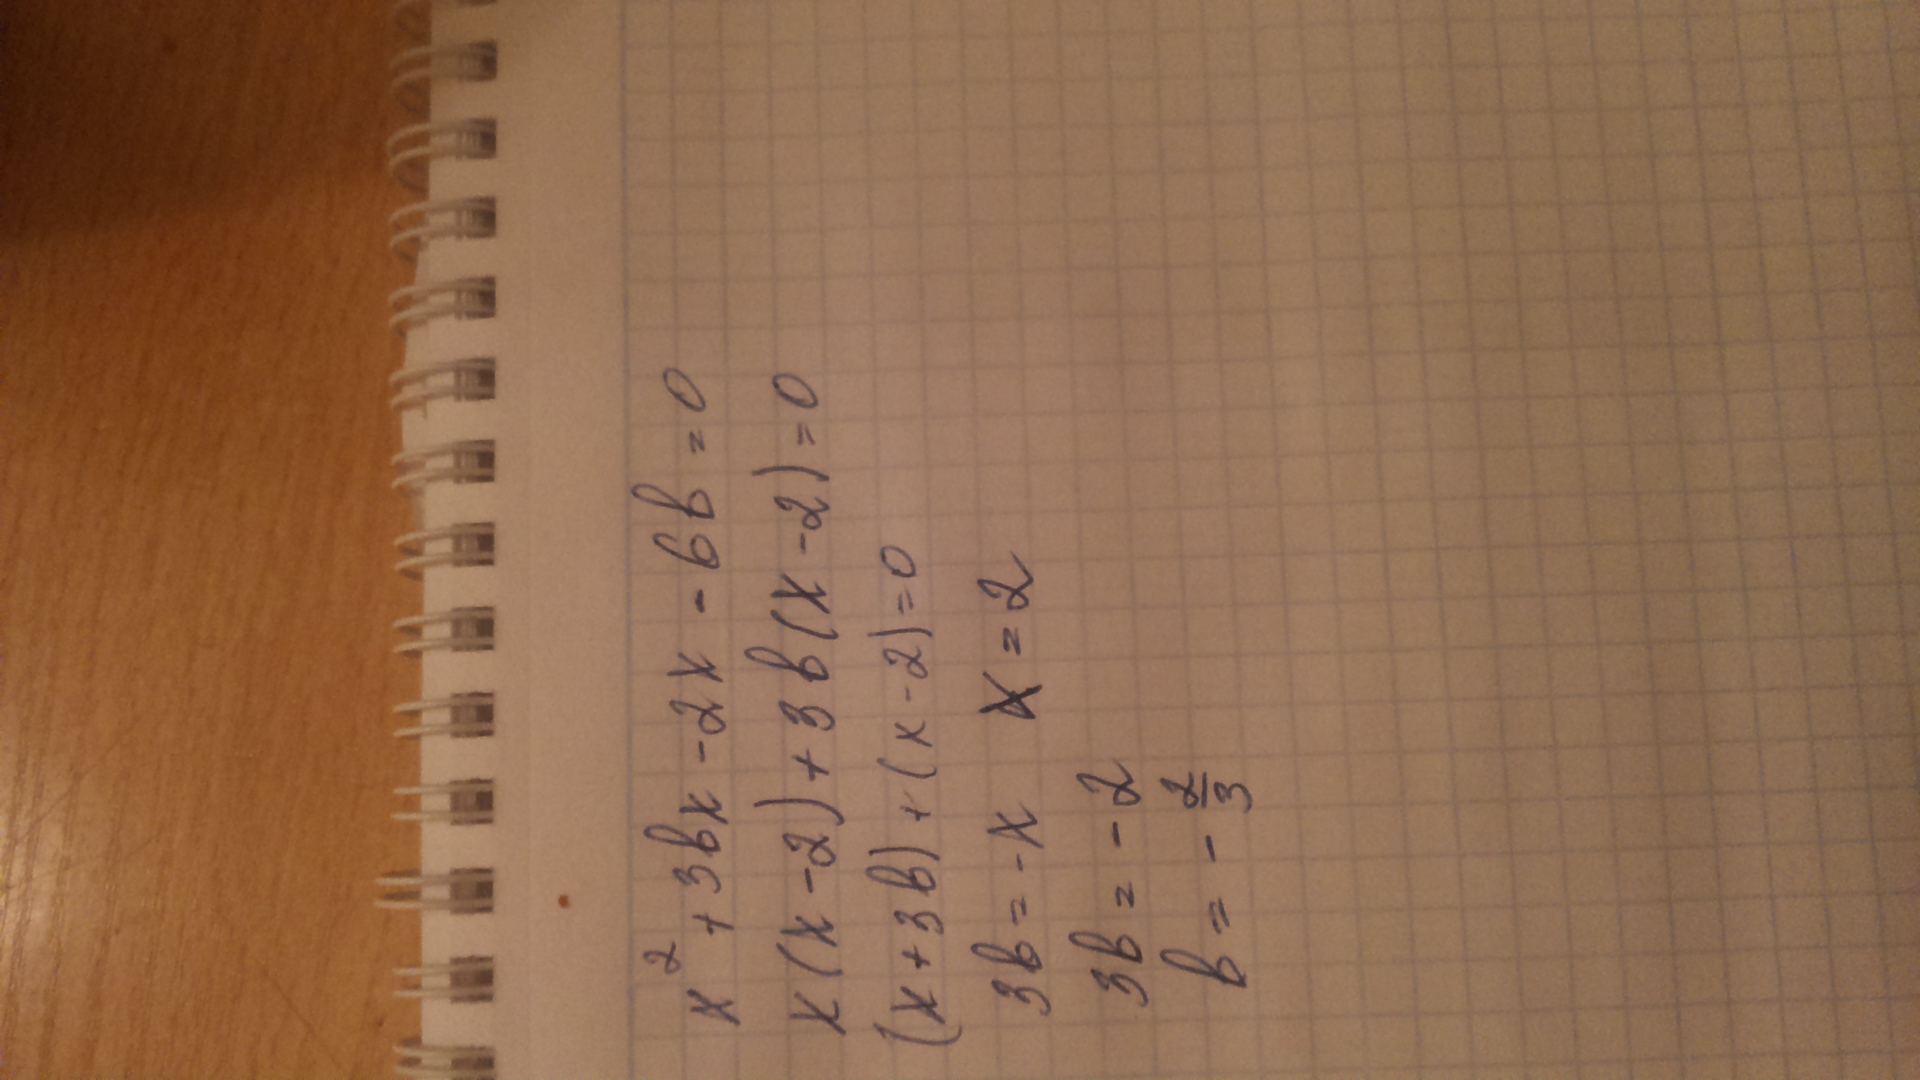 x² + 3bx - 2x - 6b = 0
x(x - 2) + 3b(x - 2) = 0
(x + 3b) + (x - 2) = 0
3b = -x x = 2
3b = -2
b = - 2/3